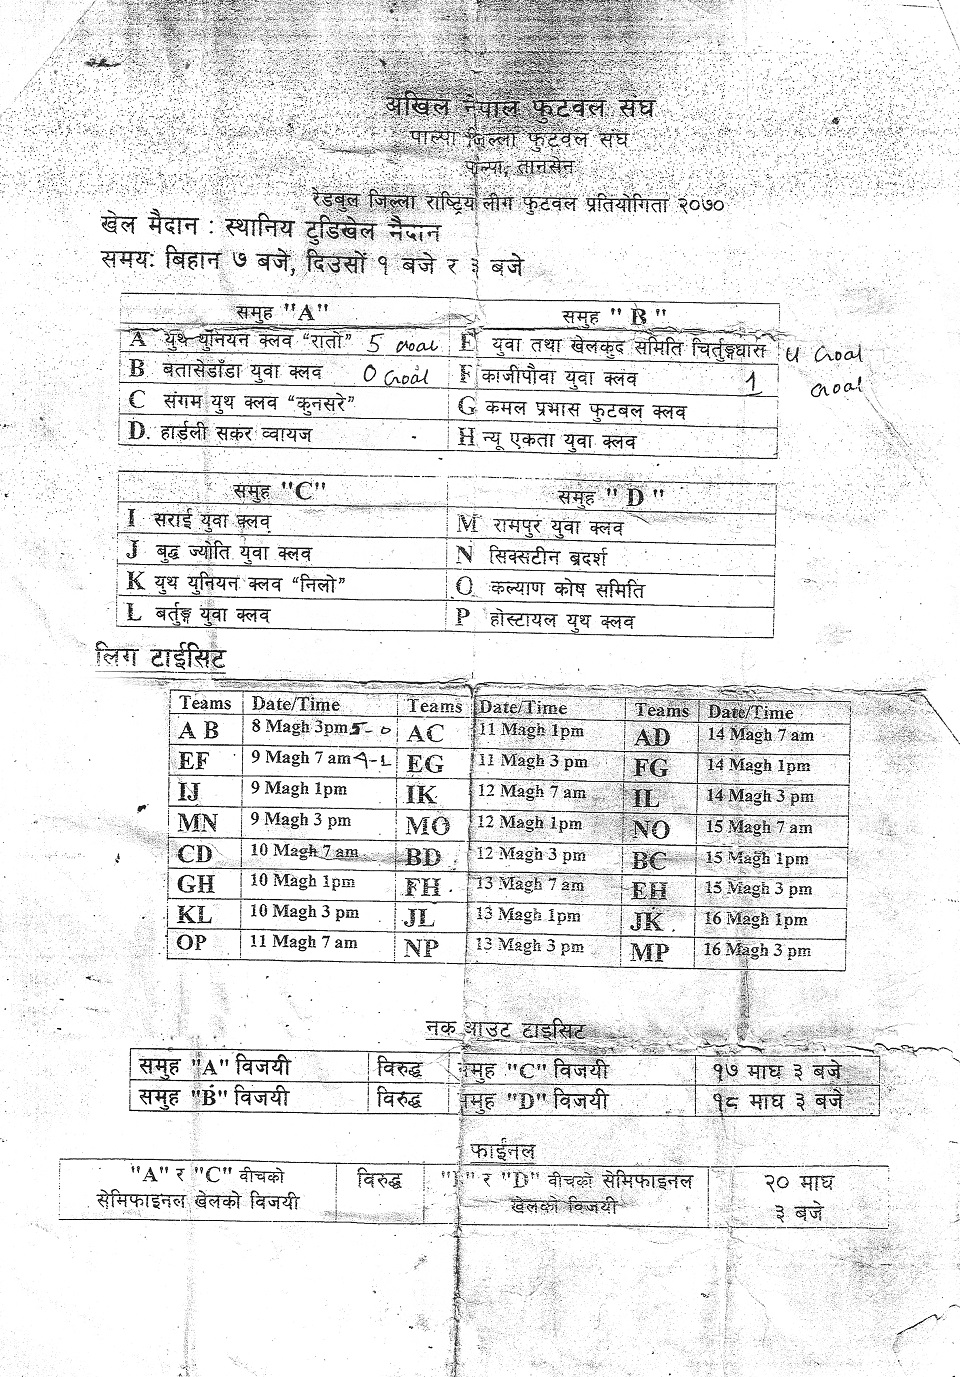 अखिल नेपाल फुटवल संघ
पाल्पा जिल्ला फुटवल संघ
पाल्पा, तानसेन
रेडबुल जिल्ला राष्ट्रिय लीग फुटवल प्रतियोगिता २०७०
खेल मैदान : स्थानिय टुडिखेल मैदान
समय: बिहान ७ बजे, दिउसो १ बजे र ३ बजे
समुह "A" समुह " B "
A युथ युनियन क्लव "रातो" 5 Goal E युवा तथा खेलकुद समिति चिर्तुङ्गधारा 4 Goal
B बतासेडाँडा युवा क्लव 0 Goal F काजीपौवा युवा क्लव 1 Goal
C संगम युथ क्लव "कुनसरे" G कमल प्रभास फुटबल क्लव
D. हार्डली सकर व्वायज H न्यू एकता युवा क्लव
समुह "C" समुह " D "
I सराई युवा क्लव M रामपुर युवा क्लव
J बुद्ध ज्योति युवा क्लव N सिक्सटीन ब्रदर्श
K युथ युनियन क्लव "निलो" O कल्याण कोष समिति
L बर्तुङ्ग युवा क्लव P होस्टायल युथ क्लव
लिग टाईसिट
Teams Date/Time Teams Date/Time Teams Date/Time
A B 8 Magh 3pm 5-0 AC 11 Magh 1pm AD 14 Magh 7 am
EF 9 Magh 7 am 4-1 EG 11 Magh 3 pm FG 14 Magh 1pm
IJ 9 Magh 1pm IK 12 Magh 7 am IL 14 Magh 3 pm
MN 9 Magh 3 pm MO 12 Magh 1pm NO 15 Magh 7 am
CD 10 Magh 7 am BD 12 Magh 3 pm BC 15 Magh 1pm
GH 10 Magh 1pm FH 13 Magh 7 am EH 15 Magh 3 pm
KL 10 Magh 3 pm JL 13 Magh 1pm JK 16 Magh 1pm
OP 11 Magh 7 am NP 13 Magh 3 pm MP 16 Magh 3 pm
नक आउट टाइसिट
समुह "A" विजयी विरुद्ध समुह "C" विजयी १७ माघ ३ बजे
समुह "B" विजयी विरुद्ध समुह "D" विजयी १८ माघ ३ बजे
फाईनल
"A" र "C" वीचको विरुद्ध र "D" वीचको सेमिफाइनल २० माघ
सेमिफाइनल खेलको विजयी खेलको विजयी ३ बजे